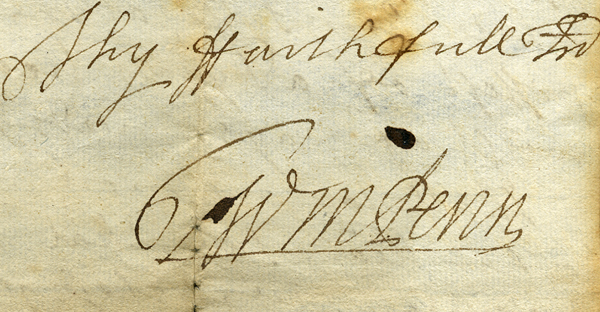 Thy ffaithfull Frd
Wm Penn